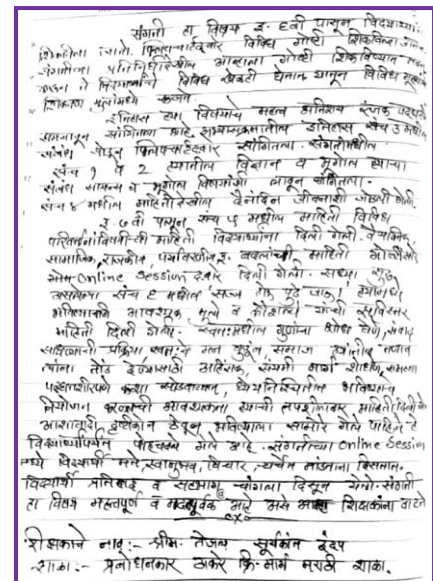 संगती हा विषय इ. ६वी पासून विद्यार्थ्यांना
शिकविला जातो. फ्लिपचार्टद्वारे विविध गोष्टी शिकविल्या जातात.
संगतीच्या प्रतिनिधींदेखील आम्हाला गोष्टी शिकविण्यात मदत
करतात ते विद्यार्थ्यांचे विविध खेळही घेतात यातून विविध मूल्यांचे
शिक्षण मुलांमध्ये रूजते.
इतिहास ह्या विषयाचे महत्व अतिशय रंजक पद्धतीने
समजावून सांगितला आहे. अभ्यासक्रमातील इतिहास संच ३ मधील
संबंध जोडून फ्लिपचार्टद्वारे सांगितला. संगतीमधील
संच १ व २ मधील विज्ञान व भूगोल ह्याचा
संबंध सामान्य व भूगोल विषयांशी लावून सांगितला.
संच ४ मधील माहितीदेखील दैनंदिन जीवनाशी जोडली गेली.
इ. ७वी पासून संच ५ मधील माहिती विविध
परिवर्तनांविषयीची माहिती विद्यार्थ्यांना दिली गेली. वैज्ञानिक
सामाजिक, राजकीय, पर्यावरणीय इ. बदलांची माहिती गोष्टीरूपे
Online Session द्वारे दिली गेली. सध्या सुरू
असलेल्या संच ६ मधील 'सज्ज होऊ पुढे जाऊ' ह्यामध्ये
भविष्यासाठी आवश्यक मूल्ये व कौशल्ये यांची सविस्तर
माहिती दिली जाते. स्वतःमधील गुणांचा शोध घेणे, संवाद
साधण्याची प्रक्रिया स्वतःचे मत कुटुंब, समाज ह्यांतील तणाव
त्यांना तोंड देण्यासाठी अहिंसक, संयमी मार्ग शोधणे, समस्या
परिणामकारकपणे कशा सोडवाव्यात, ध्येयनिश्चितीने भविष्याचे
नियोजन करण्याची आवश्यकता ह्याची तपशीलवार माहिती दिली गेली
आशावादी दृष्टीकोन ठेवून भविष्याला सामोरे गेले पाहिजे हे
विद्यार्थ्यांपर्यंत पोहचवले गेले आहे. संगतीच्या Online Session
मध्ये विद्यार्थी मते, स्वानुभव, विचार, चर्चेत मांडताना दिसतात.
विद्यार्थी प्रतिसाद व सहभाग चांगला दिसून येतो. संगती
हा विषय महत्त्वपूर्ण व मदतपूर्वक आहे असे शिक्षकांना वाटते
शिक्षकाचे नाव :- श्रीम. तेजल सूर्यकांत
शाळा :- प्रबोधनकार ठाकरे क्रि. मार्ग मराठी शाळा.